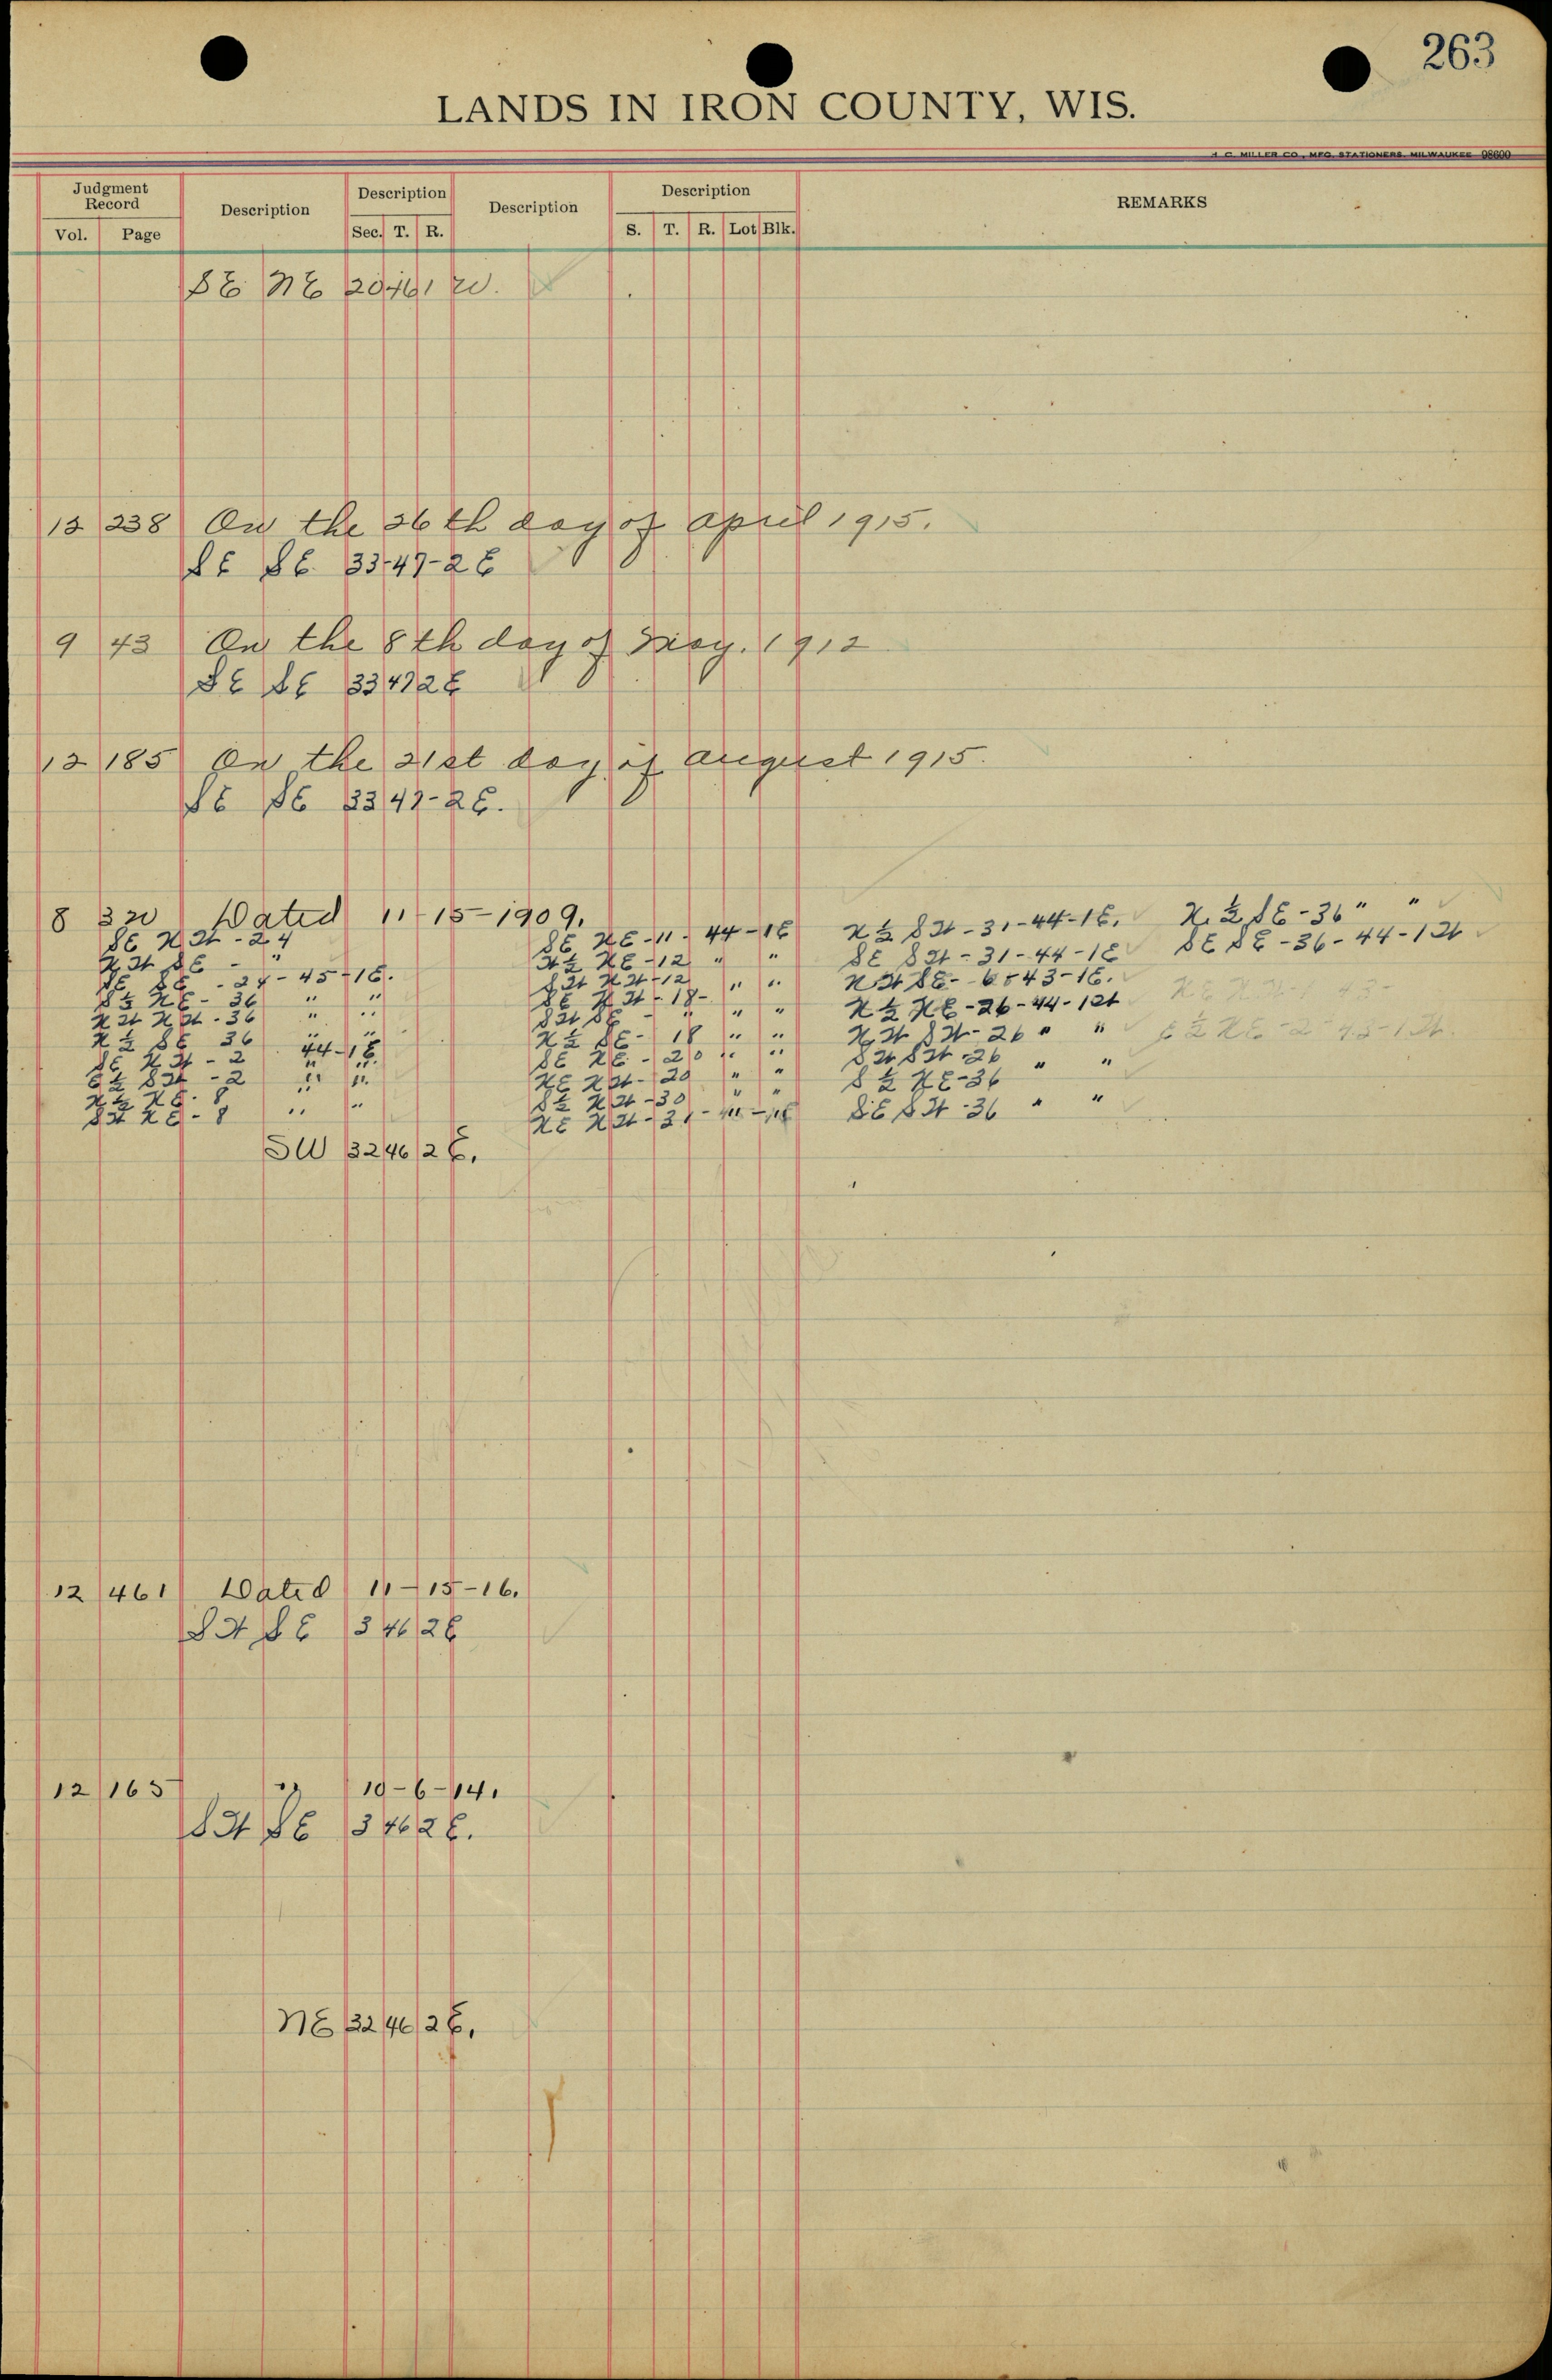 263
LANDS IN IRON COUNTY, WIS.
H. C. MILLER CO., MFG. STATIONERS, MILWAUKEE 98600
Judgment Record Description Description Description Description REMARKS
Vol. Page Sec. T. R. S. T. R. Lot Blk.
SE NE 20 46 1 W.
12 238 On the 26th day of April 1915.
SE SE 33-47-2E
9 43 On the 8th day of May. 1912
SE SE 33 47 2E
12 185 On the 21st day of August 1915.
SE SE 33 47-2E.
8 320 Dated 11-15-1909.
SE NW - 24
NW SE - "
SE SE - 24-45-1E.
S½ NE - 36 " "
NW NW - 36 " "
N½ SE 36 " "
SE NW - 2 44-1E
E½ SW - 2 " "
N½ NE - 8 " "
SW NE - 8 " "
SE NE-11- 44-1E
W½ NE-12 " "
SW NW-12
SE NW-18- " "
SW SE - " " "
N½ SE- 18 " "
SE NE - 20 " "
NE NW- 20 " "
S½ NW-30 " "
NE NW-31- " - "
N½ SW-31-44-1E.
SE SW-31-44-1E
NW SE- 6-43-1E.
N½ NE-26-44-1W
NW SW-26 " "
SW SW-26 " "
S½ NE-36
SE SW-36 " "
N.½ SE-36 " "
SE SE-36-44-1W
E½ NE-2-43-1W.
SW 32 46 2E.
12 461 Dated 11-15-16.
SW SE 3 46 2E
12 165 " 10-6-14.
SW SE 3 46 2E.
NE 32 46 2E.